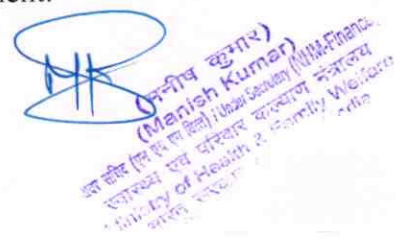 (मनीष कुमार)
(Manish Kumar)
अवर सचिव (एन एच एम वित्त) / Under Secretary (NHM-Finance)
स्वास्थ्य एवं परिवार कल्याण मंत्रालय
Ministry of Health & Family Welfare
भारत सरकार